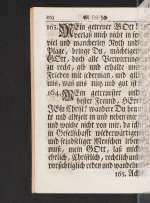 163. MEin getreuer GOtt!
verlaß mich nicht in so
viel und mancherley Noth und
Plage, bringe Du, mächtiger
GOtt, doch alle Verwirrung
zu recht, gib und erhalte uns
Frieden mit jederman, und gib
uns, was uns nütz und gut ist.
164. MEin getreuster und
bester Freund, HErr
JEsu Christ! wandere Du heu-
te und allezeit in und neben mir
und weiche nicht von mir, da ich
in Gesellschafft wiederwärtiger
und feindseliger Menschen leben
muß, mein GOtt, laß mich
ehrlich, Christlich, redlich und
vorsichtiglich reden und wandeln.
165. Ach